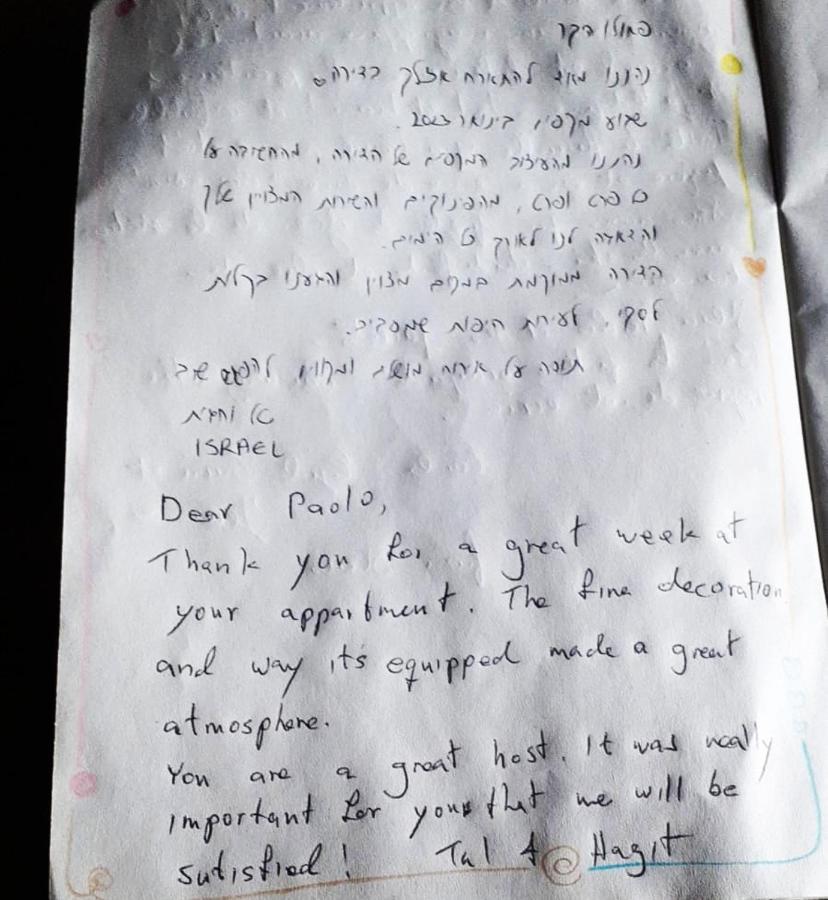 פאולו היקר
נהננו מאוד להתארח אצלך בדירה
שבוע מקסים, בינואר 2023.
נהננו מהעיצוב המקסים של הדירה, מהחשיבה על
כל פרט ופרט, מהפינוקים והשירות המצויין שלך
והדאגה לנו לאורך כל הימים.
הדירה ממוקמת במקום מצוין והגענו בקלות
לסקי, לעיירות היפות שמסביב.
תודה על אירוח מושלם ומקווים להפגש שוב
טל וחגית
ISRAEL
Dear Paolo,
Thank you for a great week at
your appartment. The fine decoration
and way it's equipped made a great
atmosphere.
You are a great host. It was really
important for you that we will be
sutisfied! Tal & Hagit